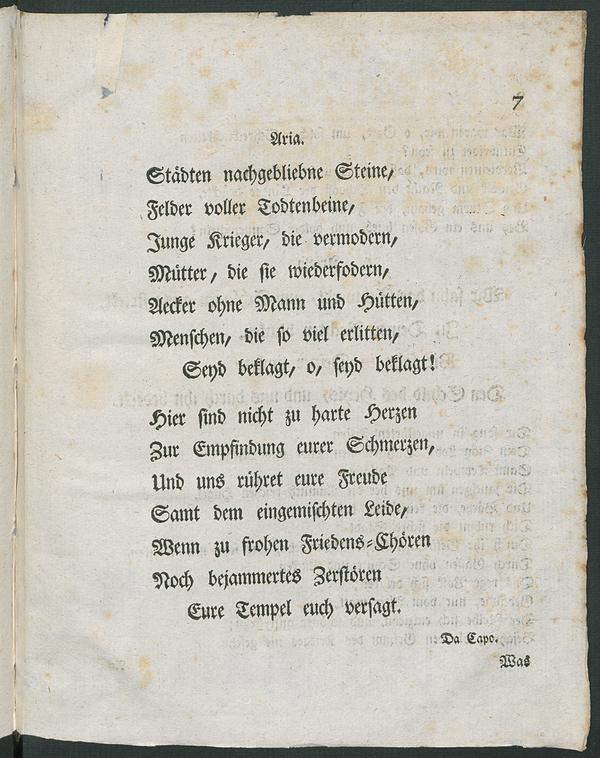 7
Aria.
Städten nachgebliebne Steine,
Felder voller Todtenbeine,
Junge Krieger, die vermodern,
Mütter, die sie wiederfodern,
Aecker ohne Mann und Hütten,
Menschen, die so viel erlitten,
Seyd beklagt, o, seyd beklagt!
Hier sind nicht zu harte Herzen
Zur Empfindung eurer Schmerzen,
Und uns rühret eure Freude
Samt dem eingemischten Leide,
Wenn zu frohen Friedens-Chören
Noch bejammertes Zerstören
Eure Tempel euch versagt.
Da Capo.
Was